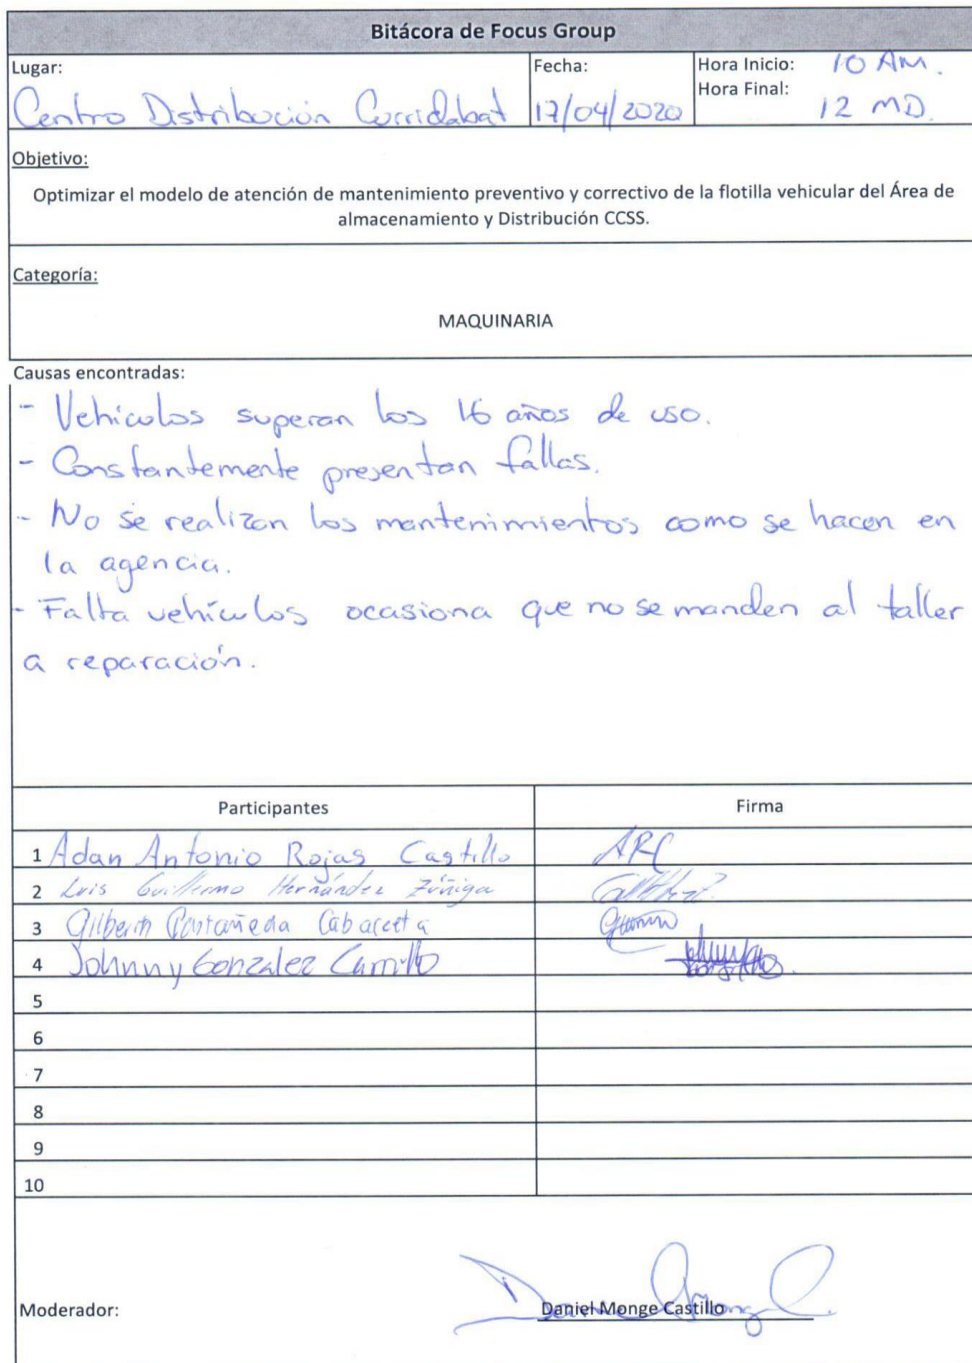 Bitácora de Focus Group
Lugar:
Centro Distribución Curridabat
Fecha:
17/04/2020
Hora Inicio: 10 AM.
Hora Final: 12 MD.
Objetivo:
Optimizar el modelo de atención de mantenimiento preventivo y correctivo de la flotilla vehicular del Área de
almacenamiento y Distribución CCSS.
Categoría:
MAQUINARIA
Causas encontradas:
- Vehículos superan los 16 años de uso.
- Constantemente presentan fallas.
- No se realizan los mantenimientos como se hacen en
la agencia.
- Falta vehículos ocasiona que no se manden al taller
a reparación.
Participantes Firma
1 Adan Antonio Rojas Castillo ARC
2 Luis Guillermo Hernández Zúñiga
3 Gilberth Castañeda
4 Johnny Gonzalez Carrillo
5
6
7
8
9
10
Moderador: Daniel Monge Castillo